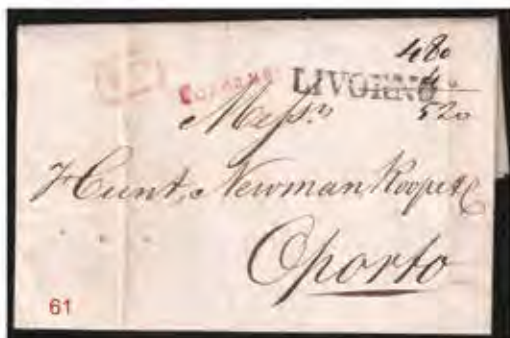 480
LIVORNO 40
520
Messrs
Hunt, Newman, Roope & C
Oporto
61